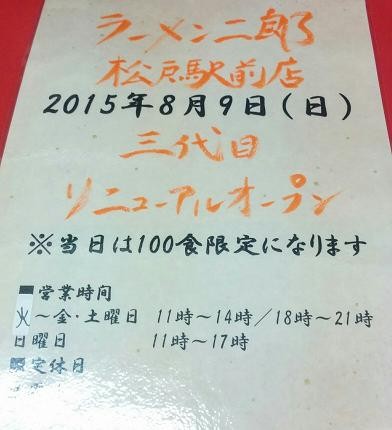 ラーメン二郎
松戸駅前店
2015年8月9日(日)
三代目
リニューアルオープン
※当日は100食限定になります
■営業時間
火~金・土曜日 11時~14時/18時~21時
日曜日 11時~17時
定休日